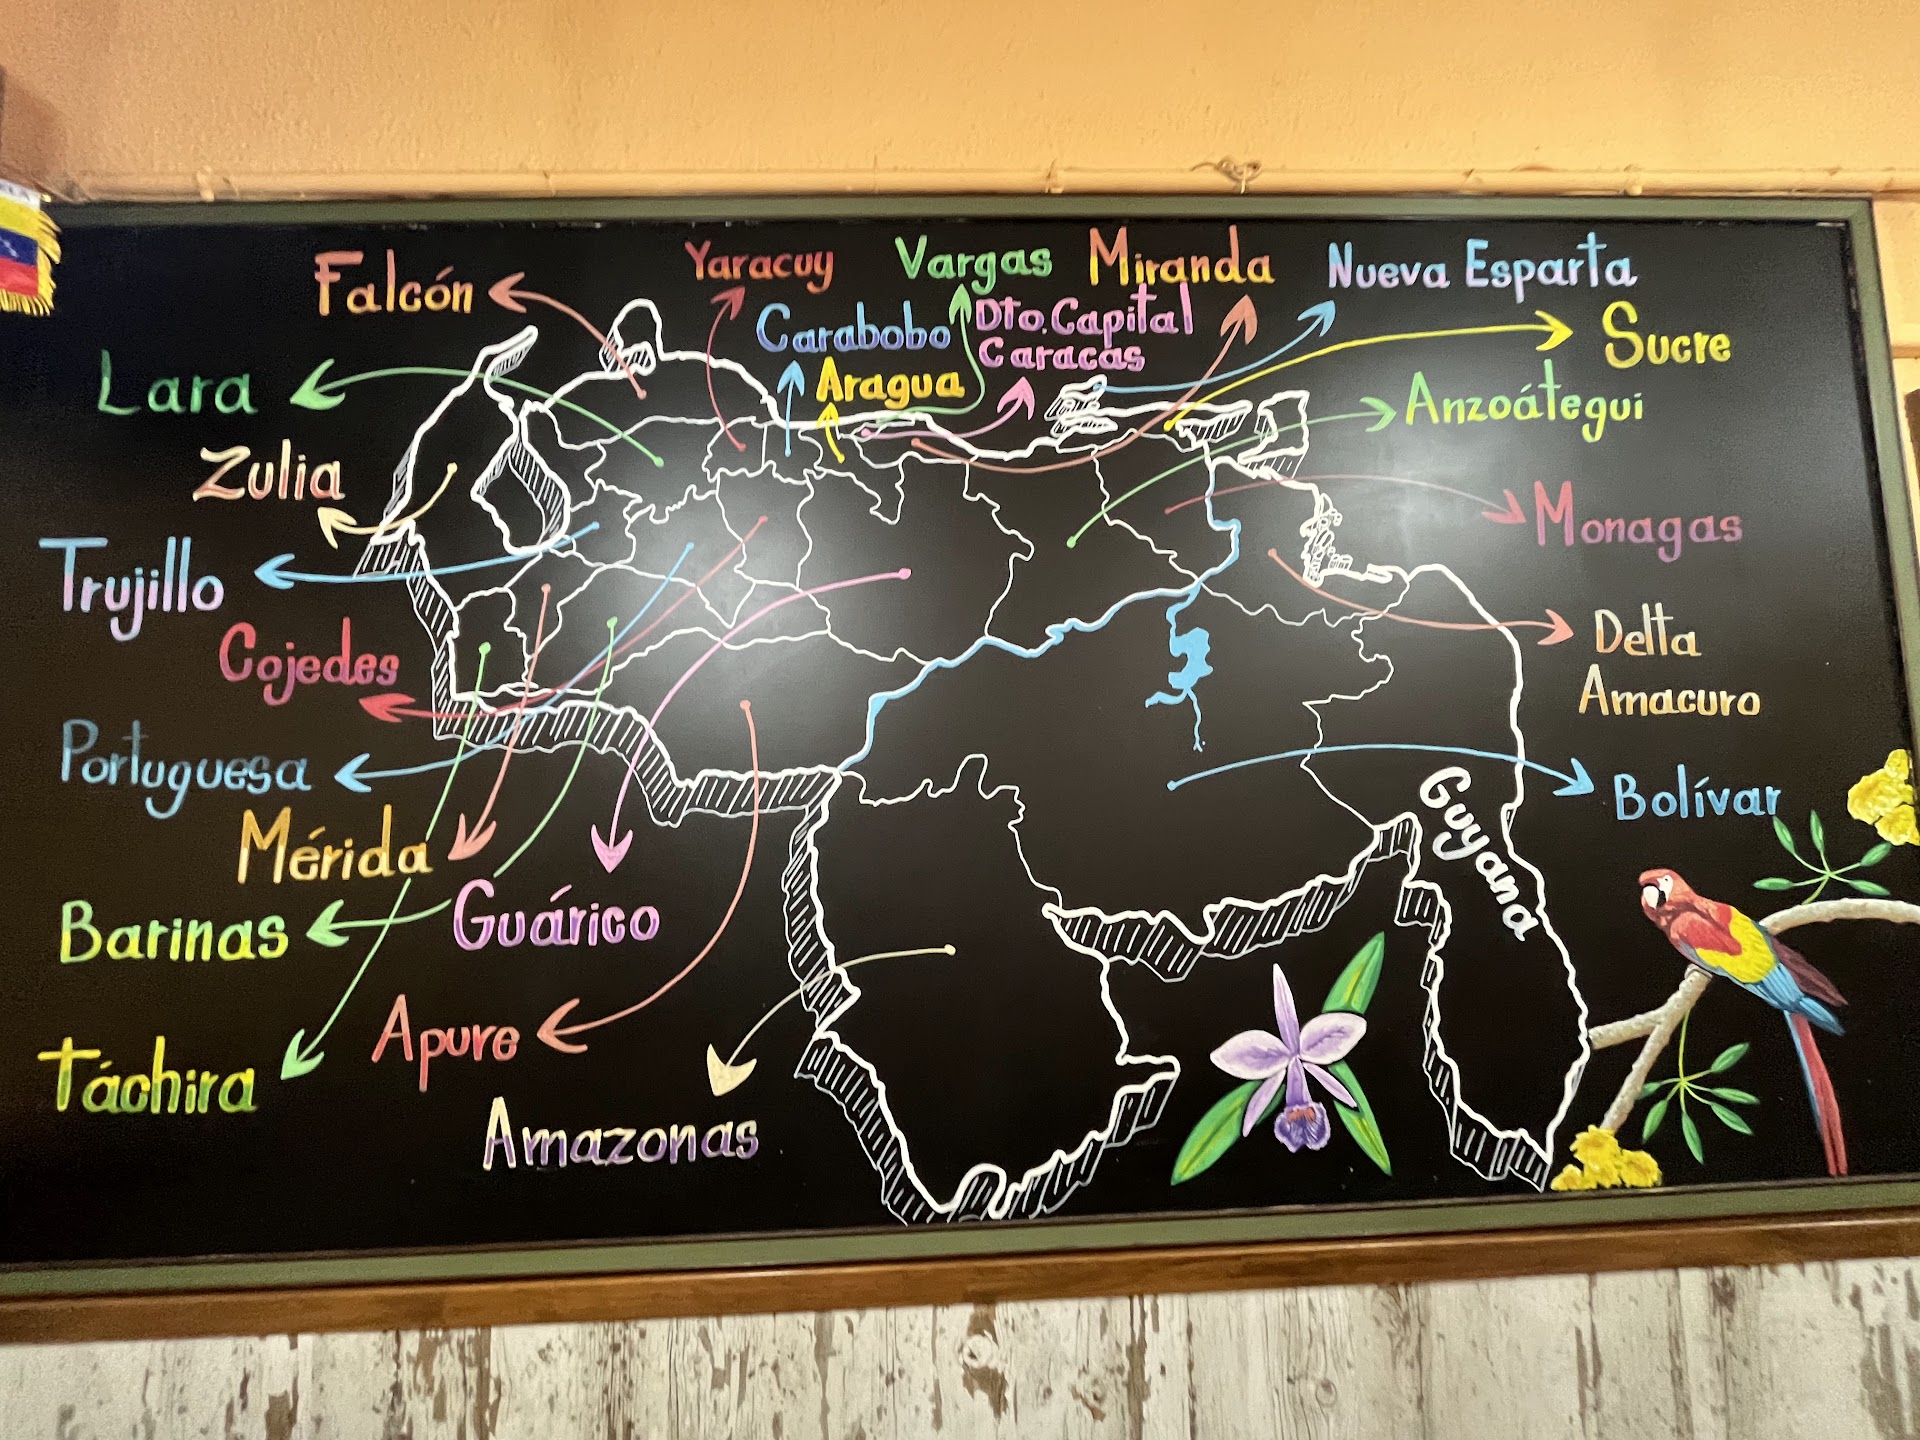 Falcón
Yaracuy
Vargas
Miranda
Nueva Esparta
Carabobo
Dto. Capital
Caracas
Aragua
Sucre
Lara
Anzoátegui
Zulia
Monagas
Trujillo
Cojedes
Delta
Amacuro
Portuguesa
Bolívar
Mérida
Guyana
Barinas
Guárico
Apure
Táchira
Amazonas